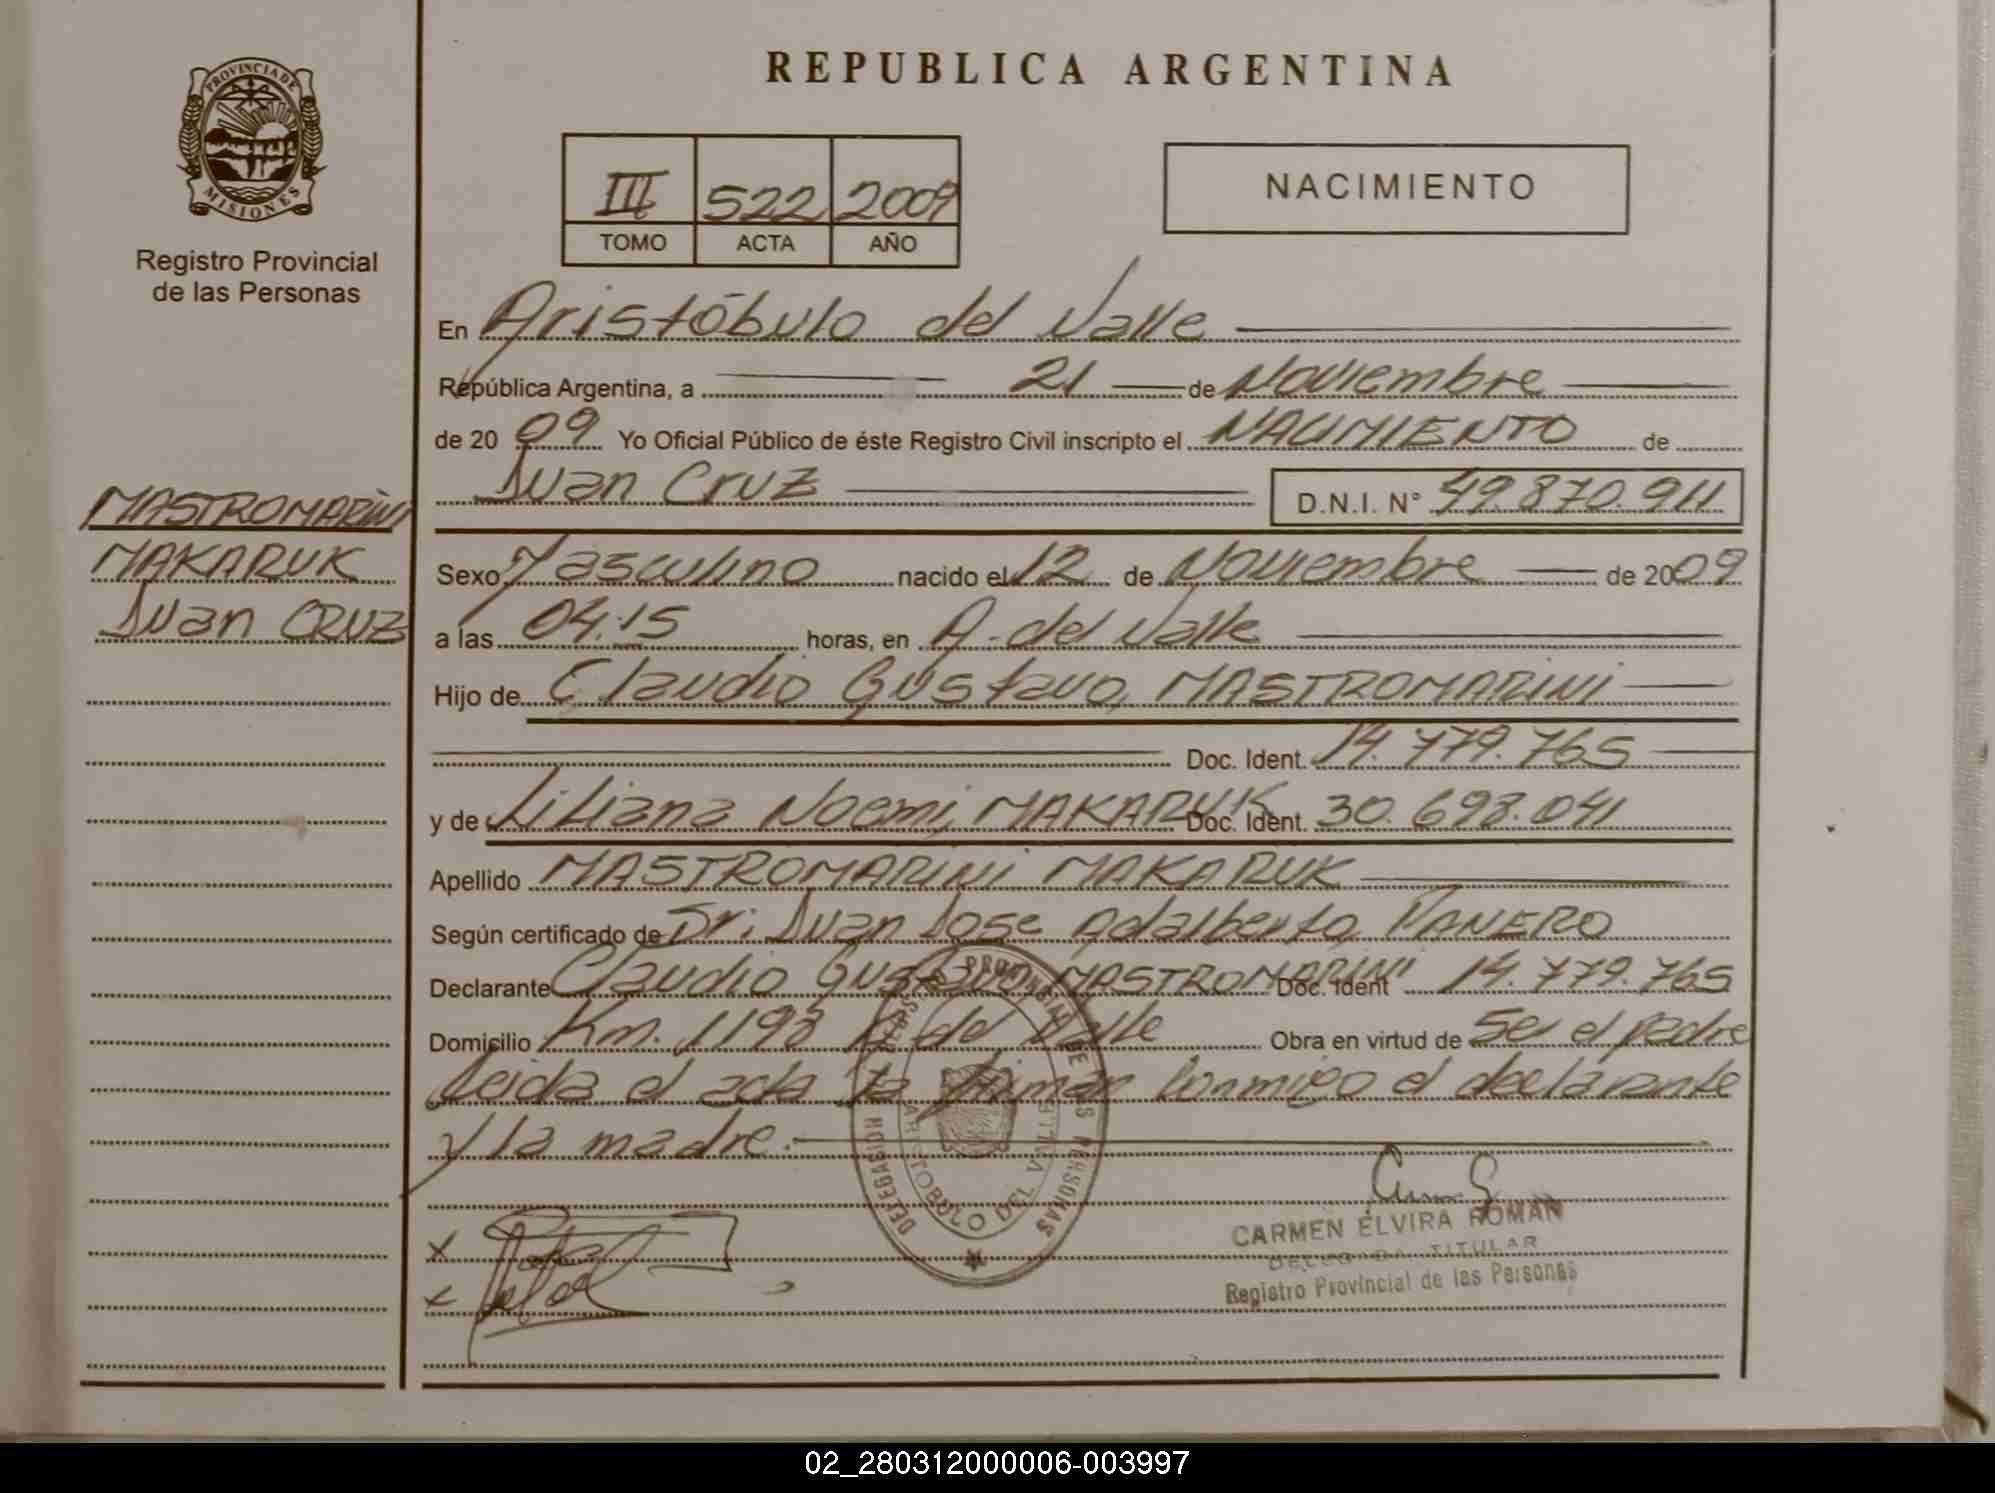 PROVINCIA DE
MISIONES
Registro Provincial
de las Personas
MASTROMARINI
MAKARUK
Juan CRUZ
REPUBLICA ARGENTINA
III 522 2009
TOMO ACTA AÑO
NACIMIENTO
En Aristóbulo del Valle
República Argentina, a 21 de Noviembre
de 2009 Yo Oficial Público de éste Registro Civil inscripto el NACIMIENTO de
Juan Cruz D.N.I. N° 49.870.911
Sexo Masculino nacido el 12 de Noviembre de 2009
a las 04:15 horas, en A. del Valle
Hijo de Claudio Gustavo MASTROMARINI
Doc. Ident. 14.779.765
y de Liliana Noemi MAKARUK Doc. Ident. 30.698.041
Apellido MASTROMARINI MAKARUK
Según certificado de Dr: Juan Jose Adalberto PANERO
Declarante Claudio Gustavo MASTROMARINI Doc. Ident 14.779.765
Domicilio Km. 1198 A. del Valle Obra en virtud de Ser el padre
Leida el acta la firman Conmigo el declarante
y la madre.-
DELEGACION REGISTRO PROVINCIAL DE LAS PERSONAS
ARISTOBULO DEL VALLE
x
x
CARMEN ELVIRA ROMAN
DELEGADA TITULAR
Registro Provincial de las Personas
02_280312000006-003997